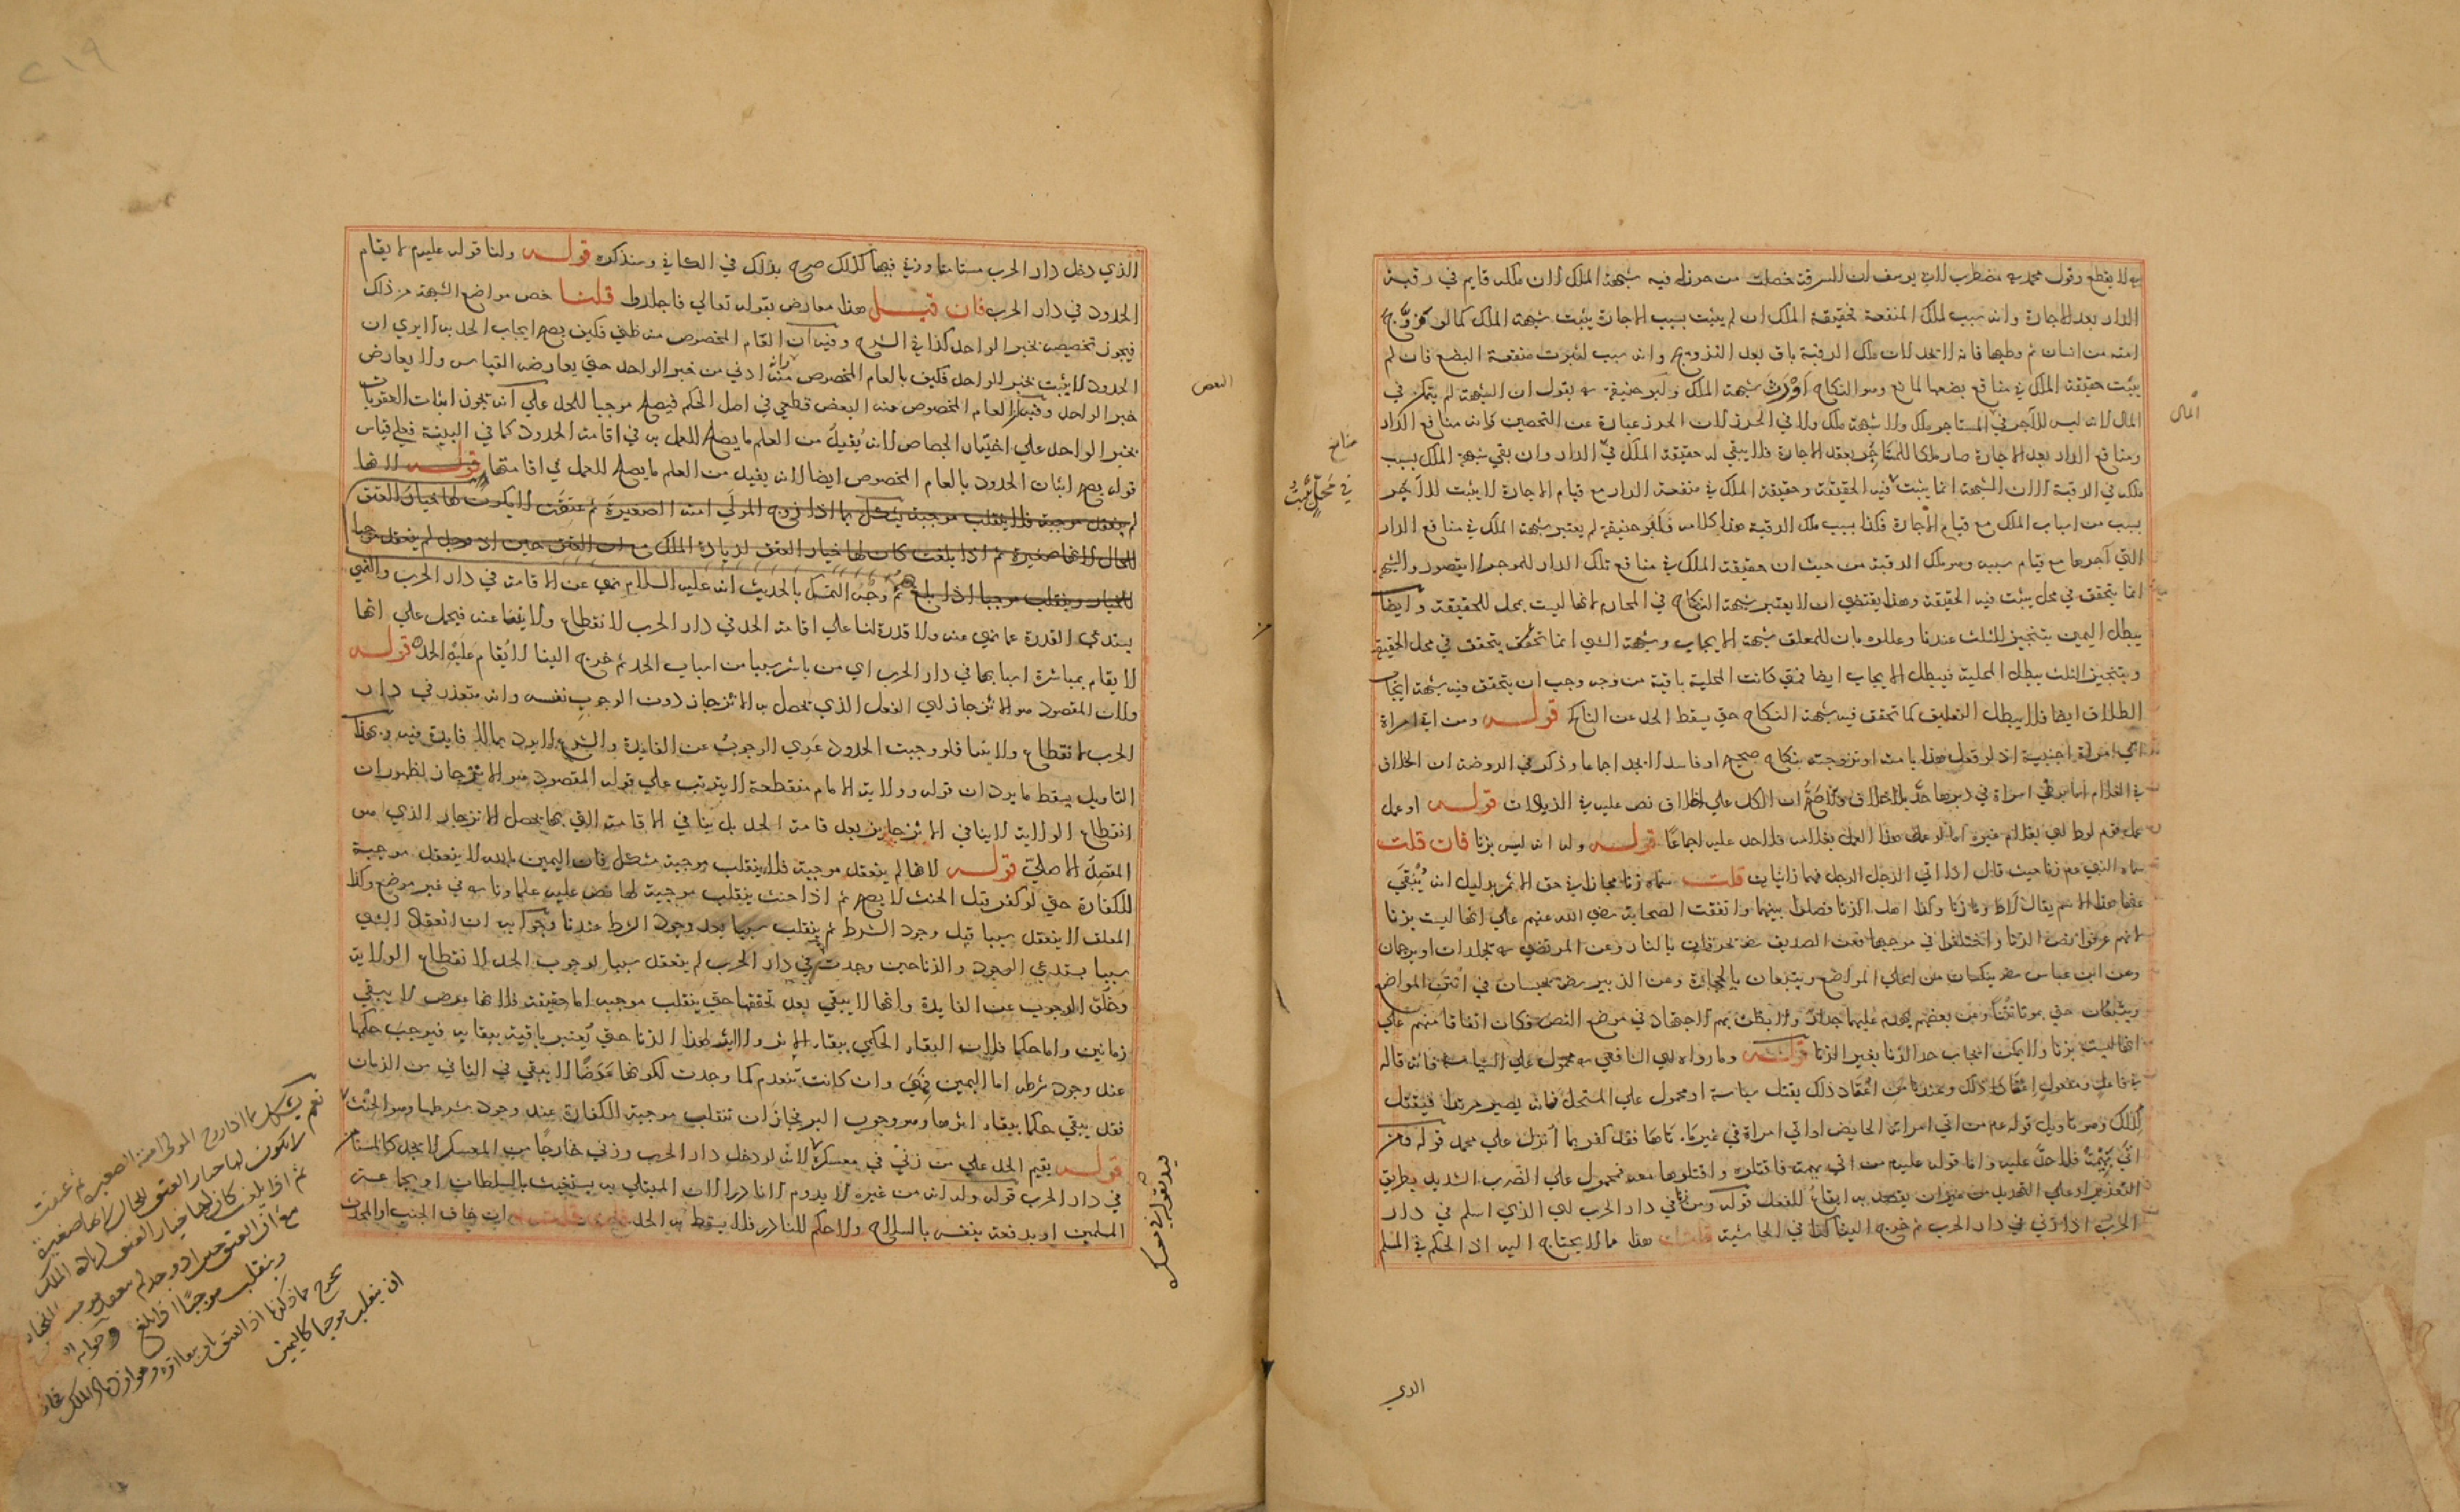 به لا يقطع وقول محمد به مضطرب لابي يوسف ان السرقة حصلت من حرز له فيه شبهة الملك لان ملكه قايم في رقبة
الدار بعد الاجارة وانه سبب لملك المنفعة فحقيقة الملك ان لم يثبت بسبب الاجارة يثبت شبهة الملك كما لو زوّج
امته من انسان ثم وطيها فانه لا يحد لان ملك الرقبة باق بعد التزويج وانه سبب لثبوت منفعة البضع فان لم
يثبت حقيقة الملك في منافع بضعها لمانع وهو النكاح اورث شبهة الملك ولابو حنيفة به يقول ان الشبهة لم يتمكن في
المال لانه ليس للآجر في المستاجر ملك ولا شبهة ملك ولا في الحرز لان الحرز عبارة عن التحصين لانه منافع الدار
ومنافع الدار بعد الاجارة صار ملكا للمستاجر بعقد الاجارة فلا يبقى له حقيقة الملك في الدار وان بقي شبهة الملك بسبب
ملكه في الرقبة الا ان الشبهة انما يثبت فيه الحقيقة وحقيقة الملك في منفعة الدار مع قيام الاجارة لا يثبت للآجر
بسبب من اسباب الملك مع قيام الاجارة فكذا بسبب ملك الرقبة هذا كلامه فابو حنيفة لم يعتبر شبهة الملك في منافع الدار
التي آجرها مع قيام سببه وهو ملك الرقبة من حيث ان حقيقة الملك في منافع تلك الدار للموجر لا يتصور والشبهة
انما يتحقق في محل يثبت فيه الحقيقة وهذا يقتضي ان لا يعتبر شبهة النكاح في المحارم لانها ليست بمحل للحقيقة وايضا
يبطل اليمين بتنجيز الثلث عندنا وعللوه بان للمعلق شبهة الايجاب وشبهة الشي انما يتحقق في محل الحقيقة
وبتنجيز الثلث يبطل المحلية فيبطل الايجاب ايضا فمتى كانت المحلية باقية من وجه وجب ان يتحقق فيه شبهة ايجاب
الطلاق ايضا فلا يبطل التعليق كما تحقق فيه شبهة النكاح حتى يسقط الحد عن الناكح قوله ومن اتي امراة
اي امراة اجنبية اذ لو فعل هذا بامته او بزوجته بنكاح صحيح او فاسد لا يحد اجماعا وذكر في الروضة ان الخلاف
في الغلام اما لو اتي امراة في دبرها حد بلا خلاف والاصح ان الكل على الخلاف نص عليه في الزيادات قوله او عمل
عمل قوم لوط اي بغلام غيره اما لو عمل هذا العمل بغلامه فلا حد عليه اجماعا قوله وله انه ليس بزنا فان قلت
سماه النبي عم زنا حيث قال اذا اتي الرجل الرجل فهما زانيان قلت سماه زنا مجازا في حق الاثم بدليل انه ينفى
عنها هذا الاسم يقال لاط وما زنا وكذا اهل الزنا فصلوا بينهما واتفقت الصحابة رضي الله عنهم على انها ليست بزنا
لانهم عرفوا نص الزنا واختلفوا في موجبها فعن الصديق رضه تحرقان بالنار وعن المرتضى به تجلدان او يرجمان
وعن ابن عباس رضه ينكسان من اعلى المواضع ويتبعان بالحجارة وعن الزبير رضه يحبسان في انتن المواضع
حتى يموتا نتنا وعن بعضهم يهدم عليهما جدار ولا يظن بهم الاجتهاد في موضع النص فكان اتفاقا منهم على
انها ليست بزنا ولا يمكن ايجاب حد الزنا بغير الزنا قوله وما رواه اي الشافعي به محمول على السياسة فانه قاله
في فاعل ومفعول اعتقادا ذلك وعندنا من اعتقد ذلك يقتل سياسة او محمول على المستحل فانه يصير مرتدا فيقتل
لذلك وهو تاويل قوله عم من اتي امراته الحايض او اتي امراة في غير ماتاها فقد كفر بما انزل على محمد قوله ومن
اتي بهيمة فلا حد عليه واما قوله عليه من اتي بهيمة فاقتلوه واقتلوها معه فمحمول على الضرب الشديد بطريق
التعزير او على التهديد من غير ان يقصد به ايقاع الفعل قوله ومن زنا في دار الحرب اي الذي اسلم في دار
الحرب اذا زني في دار الحرب ثم خرج الينا كذا في الحاشية قلت هذا مما لا يحتاج اليه اذ الحكم في المسلم
المال
منافع
في محل يثبت
الذي
٢١٩
الذي دخل دار الحرب مستامنا وزني فيها كذلك صرح بذلك في الكافي وسنذكره قوله ولنا قوله عليه م لا يقام
الحدود في دار الحرب فان قيل هذا معارض بقوله تعالي فاجلدوا قلنا خص مواضع الشبهة من ذلك
فيجوز تخصيصه بخبر الواحد كذا في الشرح وفيه ان العام المخصوص منه ظني فكيف يصح ايجاب الحد به الا يري ان
الحدود لا يثبت بخبر الواحد فكيف بالعام المخصوص منه وانه ادني من خبر الواحد حتي يعارض القياس ولا يعارض
خبر الواحد وقيل العام المخصوص منه البعض قطعي في اصل الحكم فيصلح موجبا للحد علي انه تجوز اثبات العقوبات
بخبر الواحد علي اختيار الجصاص لانه يفيد من العلم ما يصلح للعمل به في اقامة الحدود كما في البينة فعلي قياس
قوله يصح اثبات الحدود بالعام المخصوص ايضا لانه يفيد من العلم ما يصلح للعمل في اقامتها قوله لانها
لم ينعقد موجبة فلا ينقلب موجبة يشكل بما اذا زوج المولي امته الصغيرة ثم عتقت لا يكون لها خيار العتق
للحال لانها صغيرة ثم اذا بلغت كان لها خيار العتق لزيادة الملك مع ان العتق حين اذ وجد لم ينعقد موجبا
للخيار وينقلب موجبا اذا بلغ ثم وجه التمسك بالحديث انه عليه السلام نهي عن الاقامة في دار الحرب والنهي
يستدعي القدرة عما نهي عنه ولا قدرة لنا علي اقامة الحد في دار الحرب لانقطاع ولايتنا عنه فيحمل علي انها
لا يقام بمباشرة اسبابها في دار الحرب اي من باشر سببا من اسباب الحد ثم خرج الينا لا يقام عليه الحد قوله
ولان المقصود هو الانزجار اي الفعل الذي يحصل به الانزجار دون الوجوب نفسه وانه متعذر في دار
الحرب لانقطاع ولايتنا فلو وجبت الحدود عري الوجوب عن الفايدة والشرع لا يرد بما لا فايدة فيه وبهذا
التاويل يسقط ما يرد ان قوله وولاية الامام منقطعة لا يترتب علي قوله المقصود هو الانزجار لظهور ان
انقطاع الولاية لا ينافي الانزجار بعد قامة الحد بل ينافي الاقامة التي بها يحصل الانزجار الذي هو
المقصد الاصلي قوله لانها لم ينعقد موجبة فلا ينقلب موجبة مشكل فان اليمين بالله لا ينعقد موجبة
للكفارة حتي لو كفر قبل الحنث لا يصح ثم اذا حنث ينقلب موجبة لها نص عليه علماونا به في غير موضع وكذا
المعلق لا ينعقد سببا قبل وجود الشرط ثم ينقلب سببا بعد وجود الشرط عندنا وجوابه ان انعقاد الشي
سببا يستدعي الوجود والزنا حين وجدت في دار الحرب لم ينعقد سببا لوجوب الحد لانقطاع الولاية
وخلو الوجوب عن الفايدة وانها لا يبقي بعد تحققها حتي ينقلب موجبه اما حقيقة فلانها بعرض لا يبقي
زمانين واما حكما فلان البقاء الحكمي ببقاء الاثر ولا اثر لهذا الزنا حتي يعتبر باقية ببقايه فيوجب حكمها
عند وجود شرطه اما اليمين فهي وان كانت تنعدم كما وجدت لكونها عرضا لا يبقي في الثاني من الزمان
فقد يبقي حكما ببقاء اثرها وهو وجوب البر فجاز ان تنقلب موجبة للكفارة عند وجود شرطها وهو الحنث
قوله يقيم الحد علي من زني في معسكره لانه لو دخل دار الحرب وزني خارجا من المعسكر لا يحد كالمستامن
في دار الحرب قوله وله انه من غيره لا يدوم الا نادرا لان المبتلي به يستغيث بالسلطان او بجماعة
المسلمين او يدفعه بنفسه بالسلاح ولا حكم للنادر فلا يسقط به الحد فان قلت ان خاف الجنب او المحدث
البعض
قيد بقوله في معسكره
نعم يشكل بما اذا زوج المولى امته الصغيرة ثم عتقت
لا يكون لها خيار العتق للحال لانها صغيرة
ثم اذا بلغت كان لها خيار العتق لزيادة الملك
مع ان العتق حين اذ وجد لم ينعقد موجب للخيار
وينقلب موجبا اذا بلغ وجوابه
يخرج مما ذكرنا اذ العتق له بقاء اثره وهو ازدياد الملك فجاز
ان ينقلب موجبا كاليمين